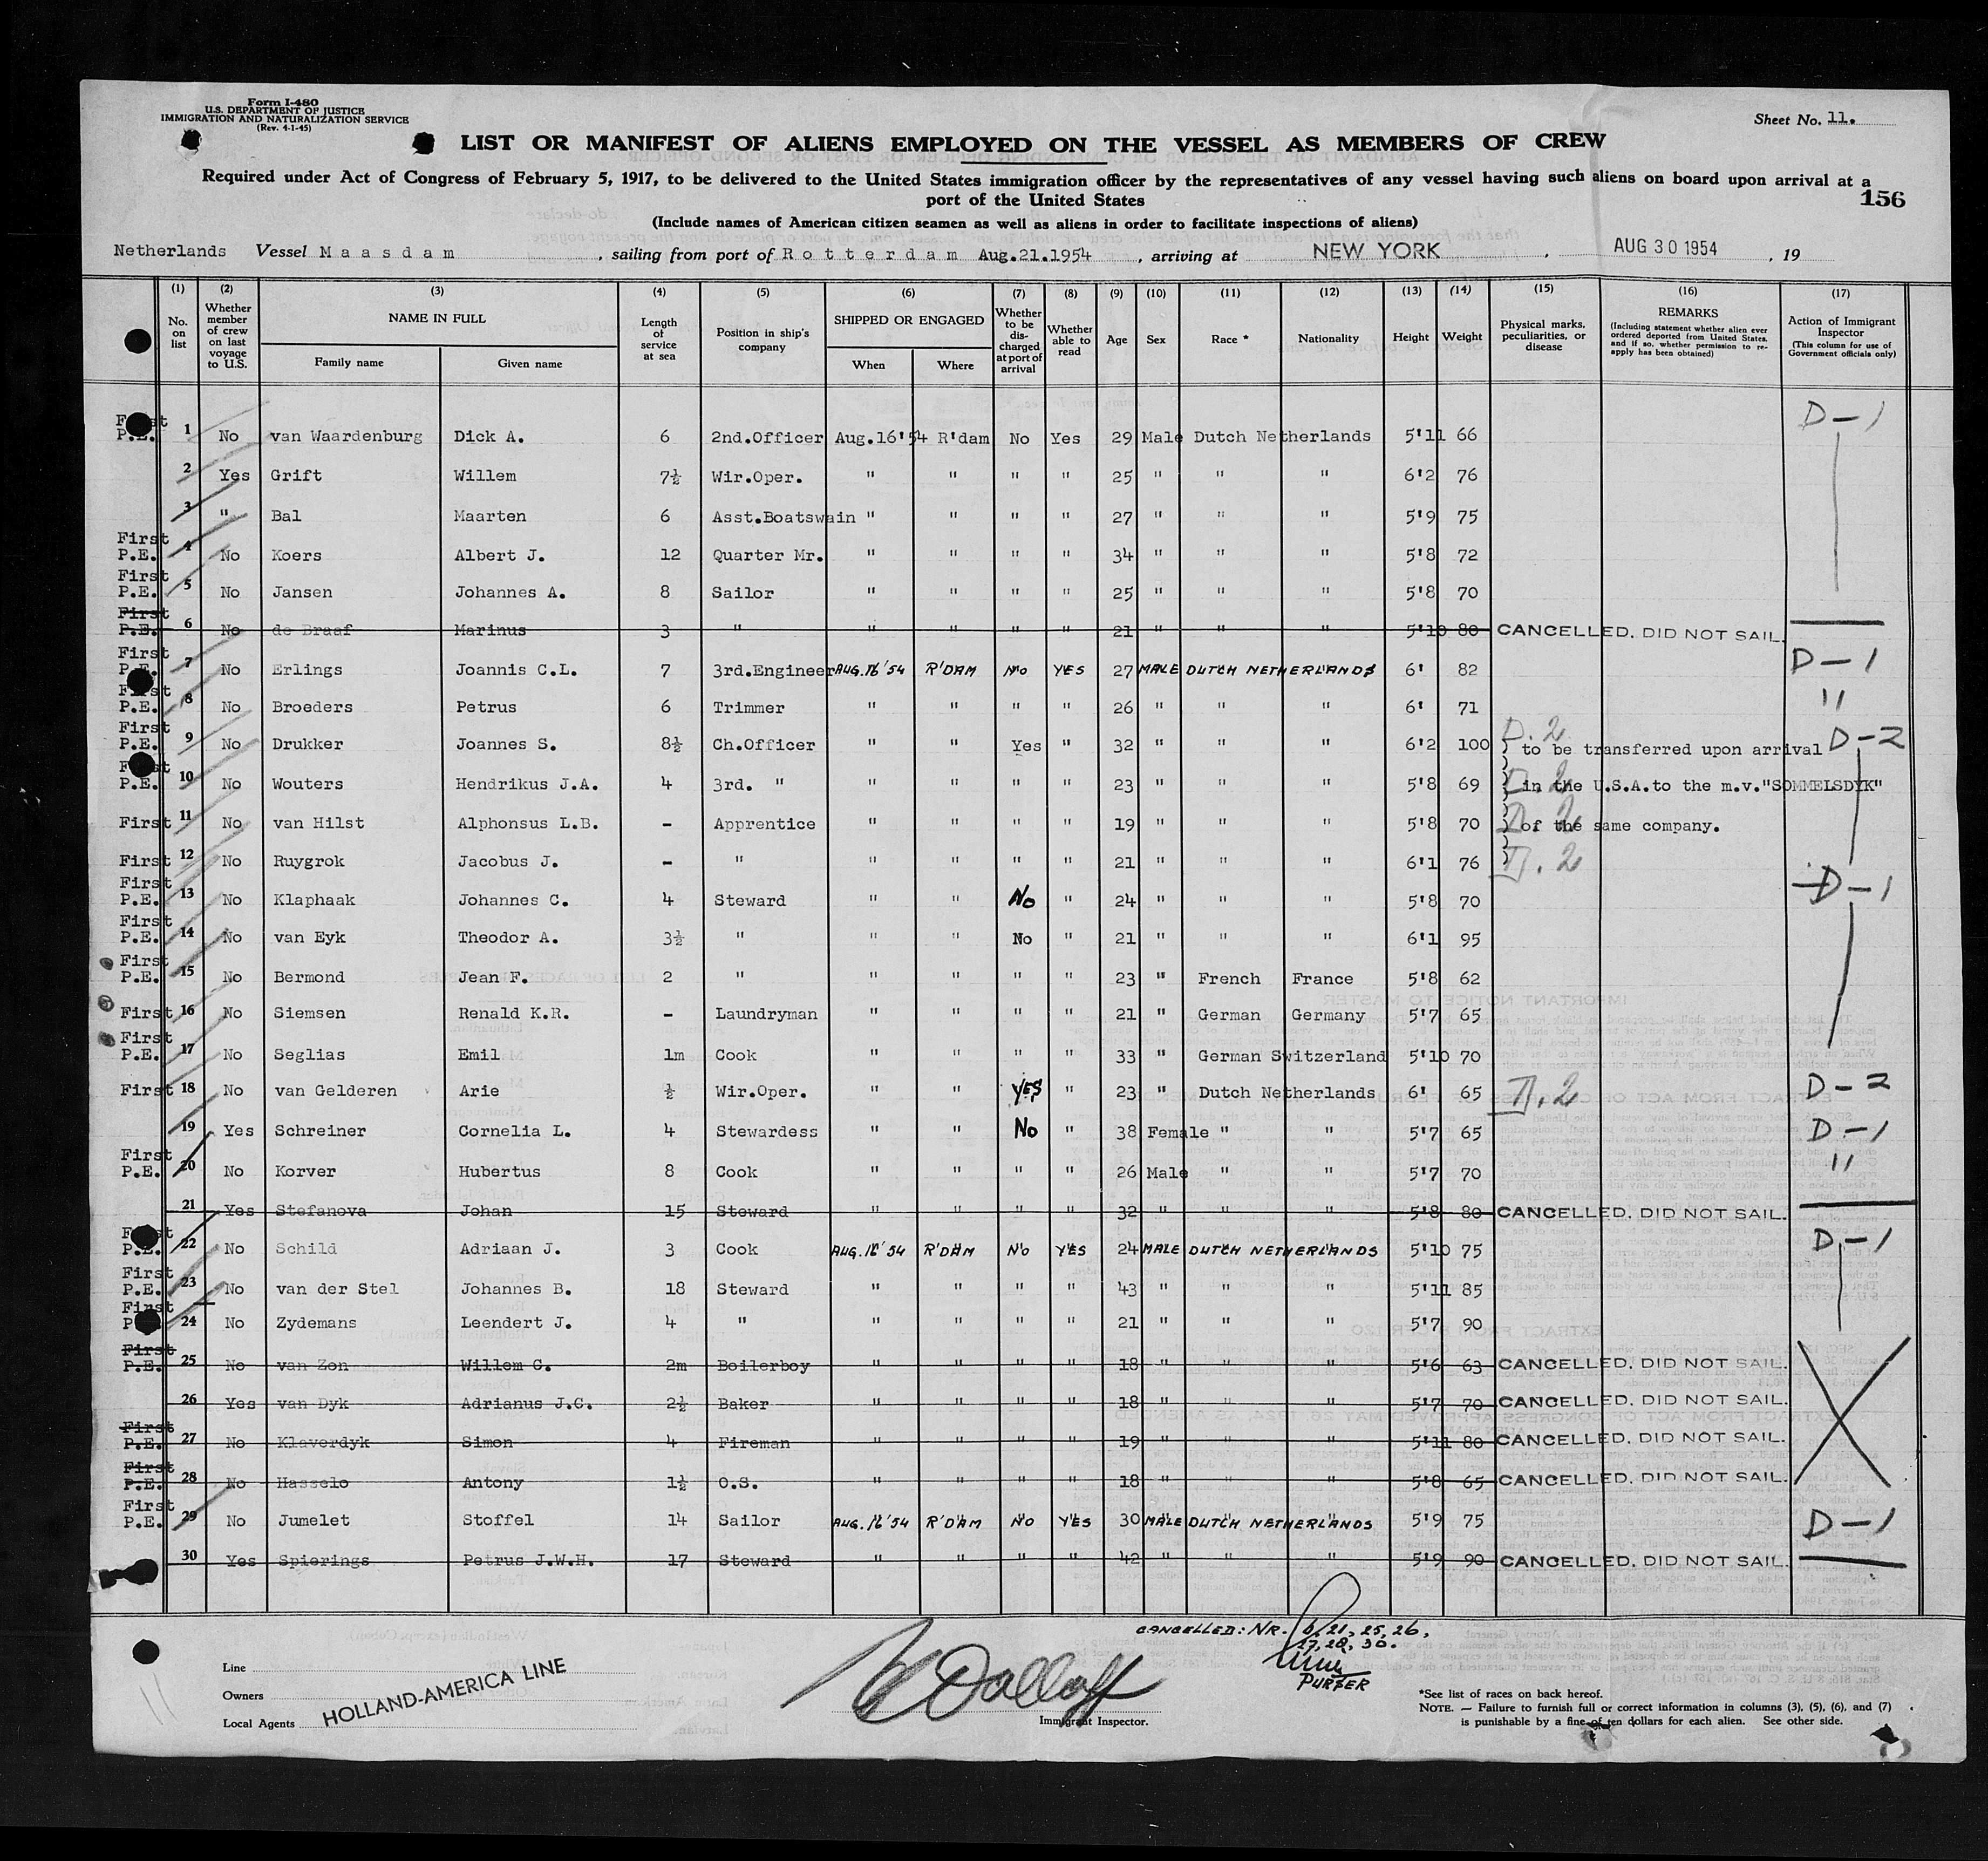 Form I-480
U.S. DEPARTMENT OF JUSTICE
IMMIGRATION AND NATURALIZATION SERVICE
(Rev. 4-1-45)
Sheet No. 11.
LIST OR MANIFEST OF ALIENS EMPLOYED ON THE VESSEL AS MEMBERS OF CREW
Required under Act of Congress of February 5, 1917, to be delivered to the United States immigration officer by the representatives of any vessel having such aliens on board upon arrival at a
port of the United States
156
(Include names of American citizen seamen as well as aliens in order to facilitate inspections of aliens)
Netherlands Vessel Maasdam, sailing from port of Rotterdam Aug.21.1954, arriving at NEW YORK, AUG 30 1954, 19
(1) No. on list (2) Whether member of crew on last voyage to U.S. (3) NAME IN FULL Family name Given name (4) Length of service at sea (5) Position in ship's company (6) SHIPPED OR ENGAGED When Where (7) Whether to be discharged at port of arrival (8) Whether able to read (9) Age (10) Sex (11) Race * (12) Nationality (13) Height (14) Weight (15) Physical marks, peculiarities, or disease (16) REMARKS (Including statement whether alien ever ordered deported from United States, and if so, whether permission to reapply has been obtained) (17) Action of Immigrant Inspector (This column for use of Government officials only)
First P.E. 1 No van Waardenburg Dick A. 6 2nd.Officer Aug.16'54 R'dam No Yes 29 Male Dutch Netherlands 5'11 66 D-1
2 Yes Grift Willem 7½ Wir.Oper. " " " " 25 " " " 6'2 76
3 " Bal Maarten 6 Asst.Boatswain " " " " 27 " " " 5'9 75
First P.E. 4 No Koers Albert J. 12 Quarter Mr. " " " " 34 " " " 5'8 72
First P.E. 5 No Jansen Johannes A. 8 Sailor " " " " 25 " " " 5'8 70
First P.E. 6 No de Braaf Marinus 3 " " " " " 21 " " " 5'10 80 CANCELLED. DID NOT SAIL.
First P.E. 7 No Erlings Joannis C.L. 7 3rd.Engineer AUG.16'54 R'DAM NO YES 27 MALE DUTCH NETHERLANDS 6' 82 D-1
First P.E. 8 No Broeders Petrus 6 Trimmer " " " " 26 " " " 6' 71 "
First P.E. 9 No Drukker Joannes S. 8½ Ch.Officer " " Yes " 32 " " " 6'2 100 D.2 to be transferred upon arrival D-2
First P.E. 10 No Wouters Hendrikus J.A. 4 3rd. " " " " " 23 " " " 5'8 69 D.2 in the U.S.A.to the m.v."SOMMELSDYK"
First 11 No van Hilst Alphonsus L.B. - Apprentice " " " " 19 " " " 5'8 70 D.2 of the same company.
First 12 No Ruygrok Jacobus J. - " " " " " 21 " " " 6'1 76 D.2
First P.E. 13 No Klaphaak Johannes C. 4 Steward " " No " 24 " " " 5'8 70 D-1
First P.E. 14 No van Eyk Theodor A. 3½ " " " No " 21 " " " 6'1 95
First P.E. 15 No Bermond Jean F. 2 " " " " " 23 " French France 5'8 62
First 16 No Siemsen Renald K.R. - Laundryman " " " " 21 " German Germany 5'7 65
First P.E. 17 No Seglias Emil 1m Cook " " " " 33 " German Switzerland 5'10 70
First 18 No van Gelderen Arie ½ Wir.Oper. " " YES " 23 " Dutch Netherlands 6' 65 D.2 D-2
19 Yes Schreiner Cornelia L. 4 Stewardess " " No " 38 Female " " 5'7 65 D-1
First P.E. 20 No Korver Hubertus 8 Cook " " " " 26 Male " " 5'7 70 "
21 Yes Stefanova Johan 15 Steward " " " " 32 " " " 5'8 80 CANCELLED. DID NOT SAIL.
First P.E. 22 No Schild Adriaan J. 3 Cook AUG.16'54 R'DAM NO YES 24 MALE DUTCH NETHERLANDS 5'10 75 D-1
First P.E. 23 No van der Stel Johannes B. 18 Steward " " " " 43 " " " 5'11 85
First 24 No Zydemans Leendert J. 4 " " " " " 21 " " " 5'7 90
First P.E. 25 No van Zon Willem C. 2m Boilerboy " " " " 18 " " " 5'6 63 CANCELLED. DID NOT SAIL.
26 Yes van Dyk Adrianus J.C. 2½ Baker " " " " 18 " " " 5'7 70 CANCELLED. DID NOT SAIL.
First P.E. 27 No Klaverdyk Simon 4 Fireman " " " " 19 " " " 5'11 80 CANCELLED. DID NOT SAIL.
First P.E. 28 No Hasselo Antony 1½ O.S. " " " " 18 " " " 5'8 65 CANCELLED. DID NOT SAIL.
First P.E. 29 No Jumelet Stoffel 14 Sailor AUG.16'54 R'DAM NO YES 30 MALE DUTCH NETHERLANDS 5'9 75 D-1
30 Yes Spierings Petrus J.W.H. 17 Steward " " " " 42 " " " 5'9 90 CANCELLED. DID NOT SAIL.
CANCELLED: NR. 6, 21, 25, 26,
27, 28, 30.
PURSER
Line
Owners
Local Agents
HOLLAND-AMERICA LINE
Immigrant Inspector.
*See list of races on back hereof.
NOTE. — Failure to furnish full or correct information in columns (3), (5), (6), and (7)
is punishable by a fine of ten dollars for each alien. See other side.